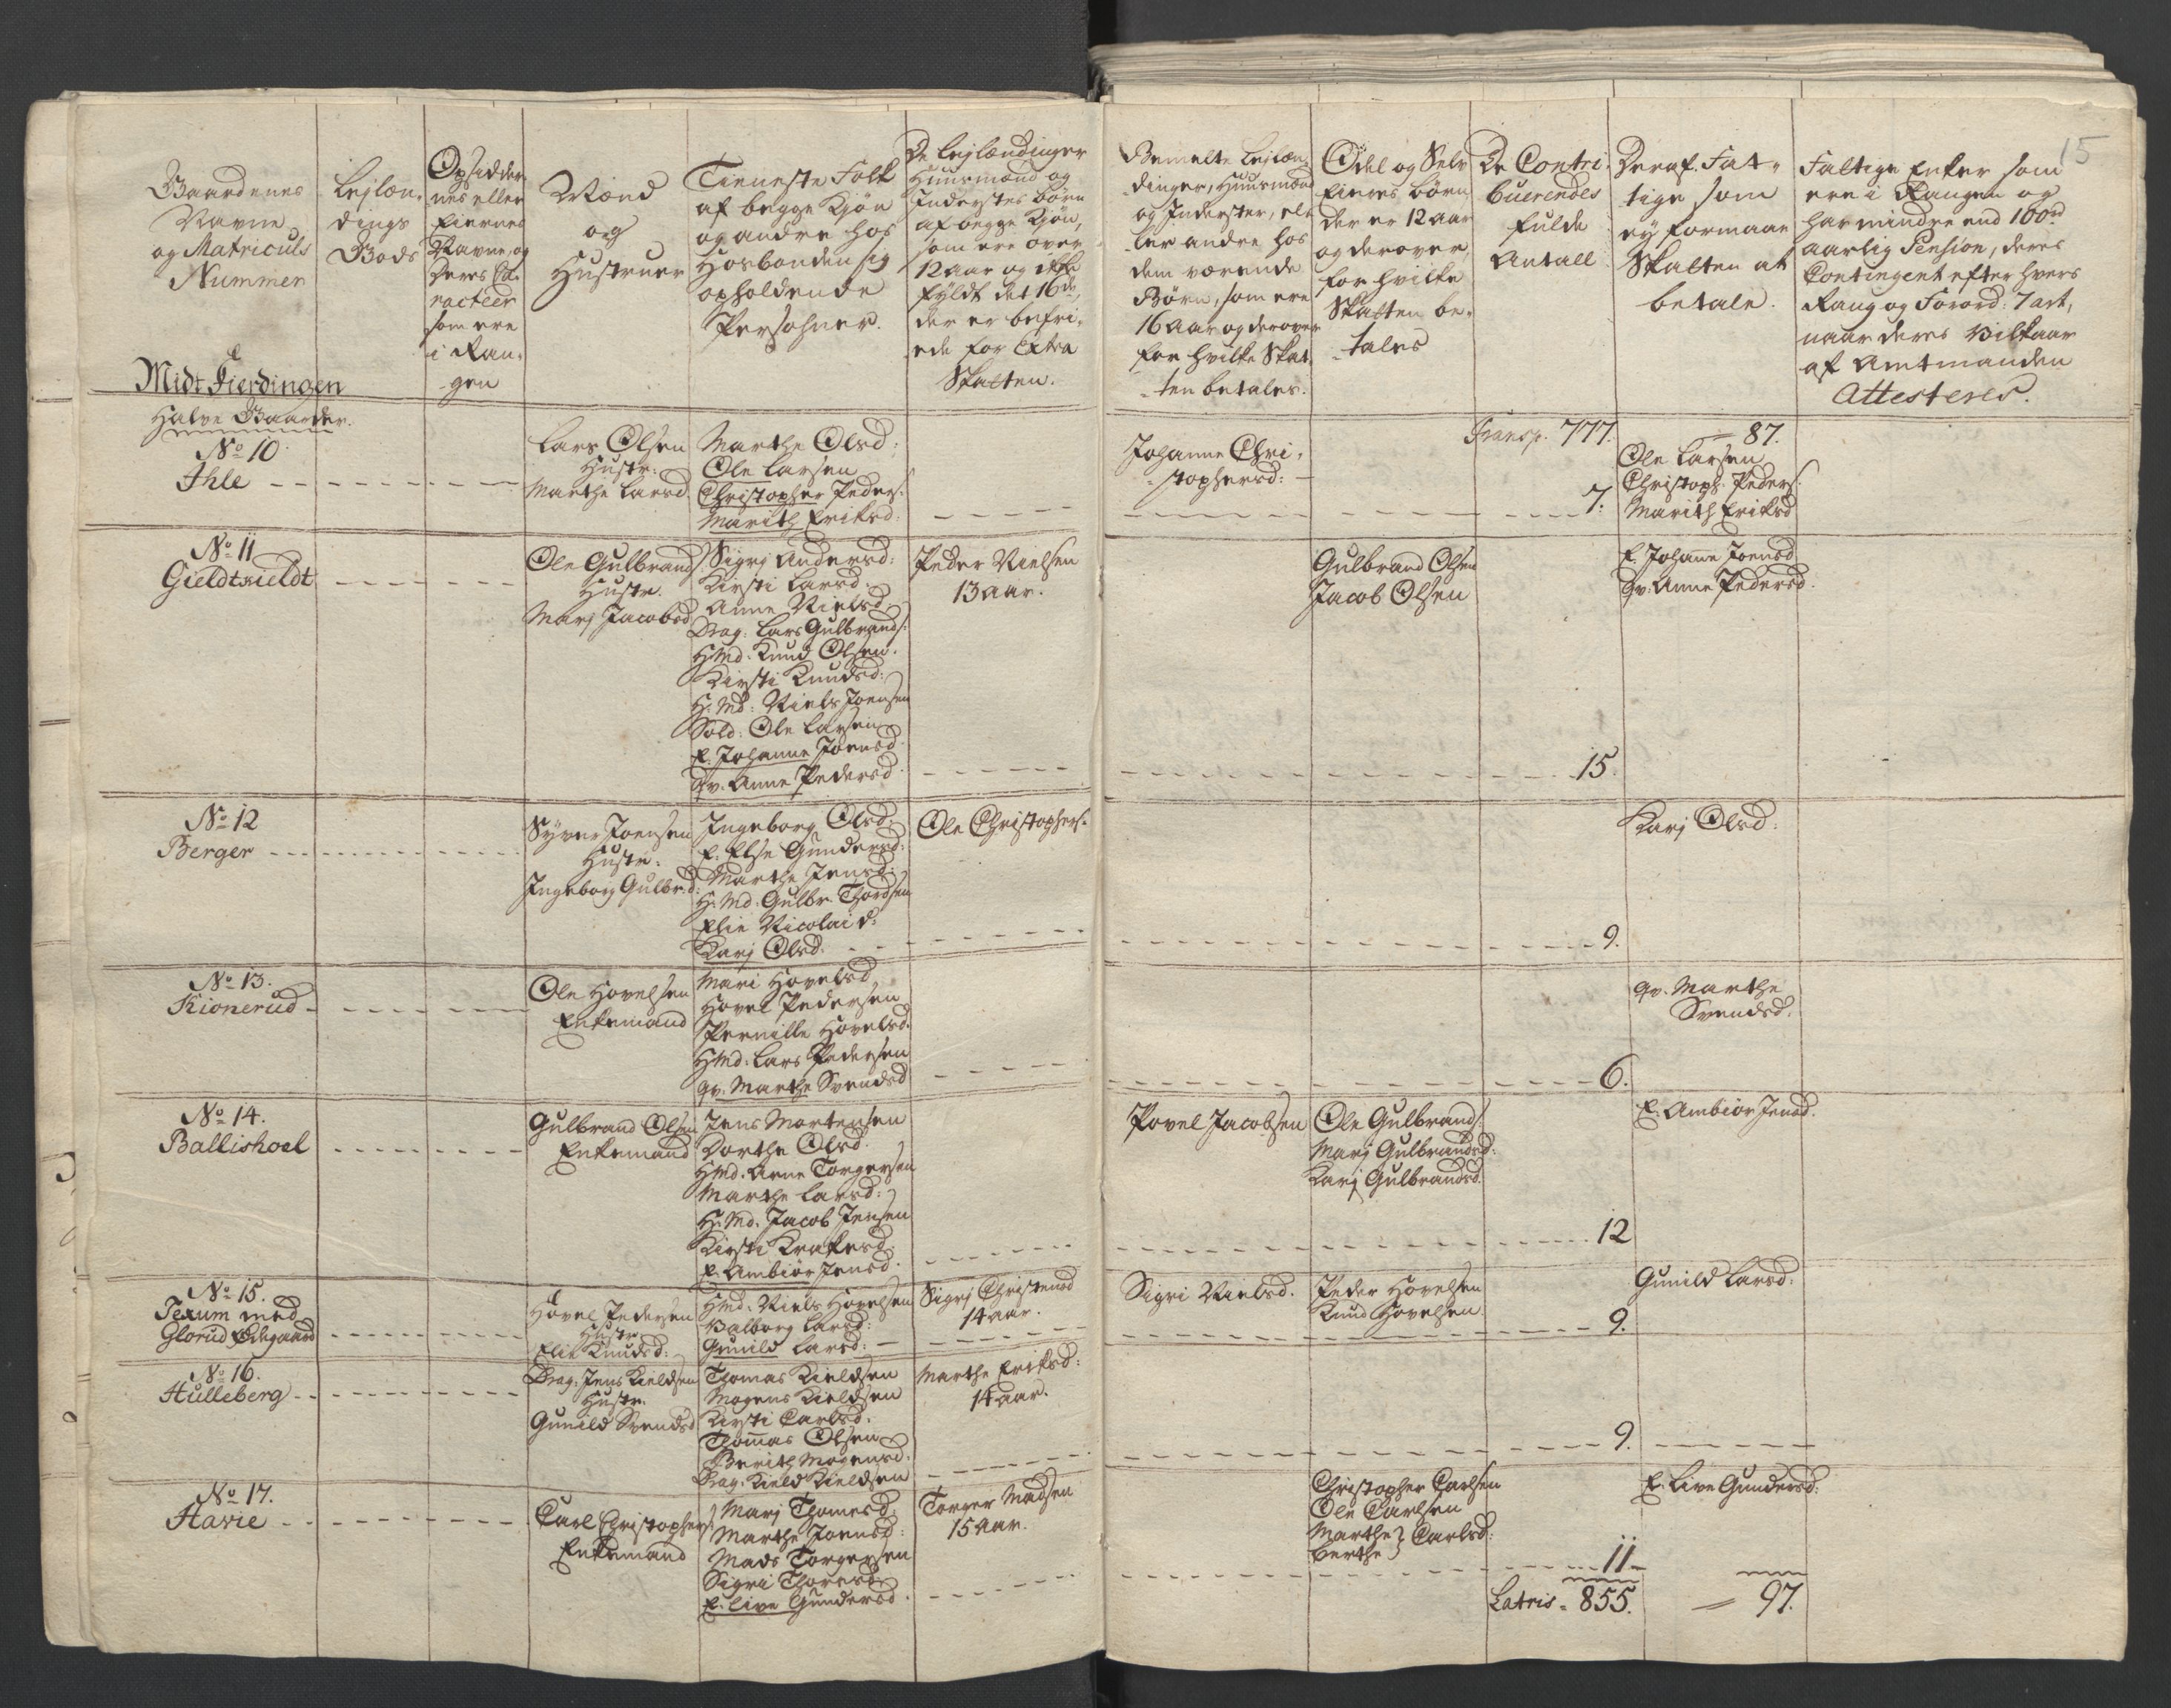 15
Gaardenes
Navne
og Matriculs
Nummer
Leilæn-
dings
Bods
Opsidder-
nes eller
Eiernes
Navne og
Deres Ca-
racteer
som ere
i Ran-
gen
Mænd
og
Hustruer
Tieneste Folk
af begge Kjøn
og andre hos
Hosbonden sig
opholdende
Persohner.
De Leilændinger
Huusmænd og
Inderstes børn
af begge Kjøn,
som ere over
12 aar og ikke
fyldt det 16de,
der er befri-
ede for Extra
Skatten.
Bemelte Leilæn-
dinger, Huusmænd
og Inderster, el-
ler andre hos
dem værende
Børn, som ere
16 Aar og derover
for hvilke Skat-
ten betales.
Odel og Selv
Eieres børn
der er 12 aar
og derover,
for hvilke
Skatten be-
tales
De Contri-
buerendes
fulde
Antall
Deraf Fat-
tige som
ey formaar
Skatten at
betale.
Fattige Enker som
ere i Rangen og
har mindre end 100rd
aarlig Pension, deres
Contingent efter hvers
Rang og Forord: 7 art,
naar deres Vilkaar
af Amtmanden
Attesteres.
Midt Fierdingen
Halve Gaarder.
Transp. 777.
87.
No 10
Ihle
Lars Olsen
Hustr:
Marthe Larsd
Marthe Olsd:
Ole Larsen
Christopher Peders:
Marith Eriksd:
Johanne Chri-
stophersd:
7.
Ole Larsen
Christoph. Peders:
Marith Eriksd
No 11
Gieldtvieldt
Ole Gulbrands:
Hustr.
Marj Jacobsd
Sigrj Andersd:
Kirsti Larsd.
Anne Nielsd
Drag: Lars Gulbrands:
HMd: Knud Olsen.
Kirsti Knudsd:
H: Md: Niels Joensen
Sold: Ole Larsen
E. Johanne Joensd
qv. Anne Pedersd.
Peder Nielsen
13 aar.
Gulbrand Olsen
Jacob Olsen
15.
E. Johane Joensd
qv: Anne Pedersd.
No 12
Berger
Syver Joensen
Hustr.
Ingeborg Gulbr:d:
Ingeborg Olsd.
E. Else Gundersd:
Marthe Jensd:
H: Md: Gulbr. Thordsen
Elie Nicolai d:
Karj Olsd.
Ole Christophers:
9.
Karj Olsd:
No 13.
Kionerud
Ole Hovelsen
Enkemand
Mari Hovelsd
Hovel Pedersen
Pernille Hovelsd.
HMd: Lars Pedersen
qv. Marthe Svendsd
6.
qv. Marthe
Svendsd.
No 14.
Ballishoel
Gulbrand Olsen
Enkemand
Jens Mortensen
Dorthe Olsd.
HMd. Arne Torgersen
Marthe Larsd:
H: Md. Jacob Jensen
Kirsti Krakesd.
E. Ambiør Jensd.
Povel Jacobsen
Ole Gulbrands:
Marj Gulbrandsd:
Karj Gulbrandsd.
12
E. Ambiør Jensd.
No 15.
Texum med
Glorud Ødegaard
Hovel Pedersen
Hustr
Elie Knudsd:
HMd. Niels Hovelsen
Valborg Larsd:
Gunild Larsd:
Sigrj Christensd
14 aar.
Sigri Nielsd.
Peder Hovelsen
Knud Hovelsen
9.
Gunild Larsd:
No 16.
Hulleberg
Drag: Jens Kieldsen
Hustr.
Gunild Svendsd
Thomas Kieldsen
Mogens Kieldsen
Kirsti Carlsd:
Thomas Olsen
Berith Mogensd.
Drag. Kield Kieldsen
Marthe Eriksd:
14 aar.
9.
No 17.
Havie
Carl Christophers:
Enkemand
Marj Thomesd
Marthe Joensd:
Mads Torgersen
Sigri Thoresd
E. Live Gundersd.
Torger Madsen
15 Aar.
Christopher Carlsen
Ole Carlsen
Marthe } Carlsd:
Berthe
11
E. Live Gundersd:
Latris. 855.
97.